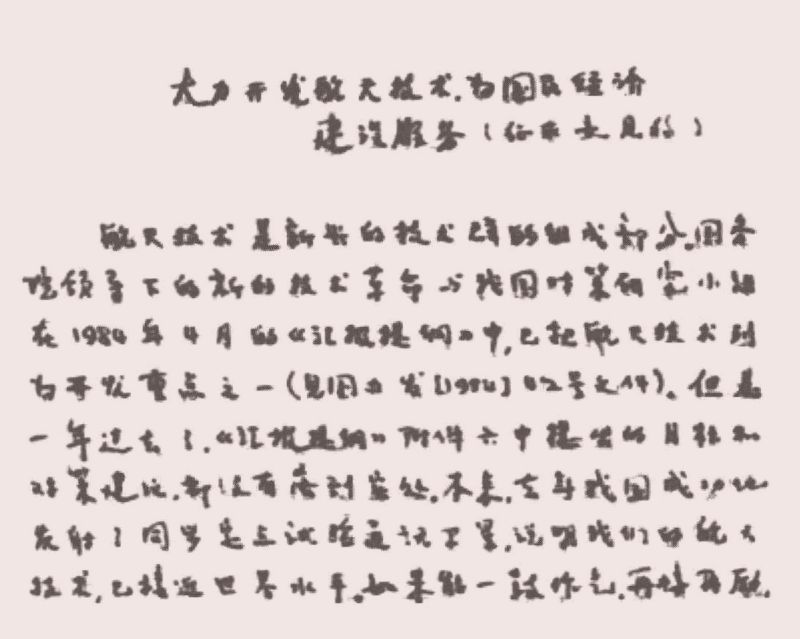 大力开发航天技术,为国民经济
建设服务(征求意见稿)
航天技术是新兴的技术群的组成部分。国务
院领导下的新的技术革命与我国对策研究小组
在1984年4月的《汇报提纲》中,已把航天技术列
为开发重点之一(见国 发[1984]42号文件)。但是
一年过去了,《汇报提纲》附件六中提出的目标和
对策建议,都没有落到实处。不来,去年我国成功地
发射了同步定点试验通讯卫星,说明我们的航天
技术,已接近世界水平。如果能一鼓作气,再接再励,